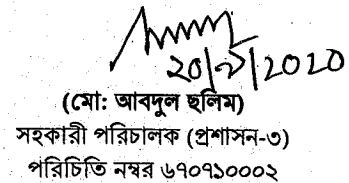 ২০/৯/2020
(মো: আবদুল ছলিম)
সহকারী পরিচালক (প্রশাসন-৩)
পরিচিতি নম্বর ৬৭০৭১০০০২